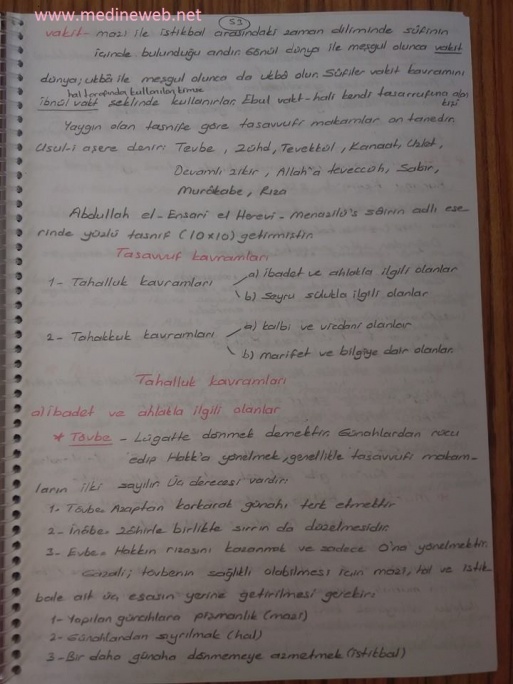 www.medineweb.net
53
vakit - mazi ile istikbal arasındaki zaman diliminde sûfînin
içinde bulunduğu andır. Gönül dünya ile meşgul olunca vakit
dünya; ukbâ ile meşgul olunca da ukbâ olur. Sûfiler vakit kavramını
hal tarafından kullanılan kimse
ibnül vakt şeklinde kullanırlar. Ebul vakt - hali kendi tasarrufuna alan
kişi
Yaygın olan tasnife göre tasavvufi makamlar on tanedir.
Usul-i aşere denir: Tevbe, Zühd, Tevekkül, Kanaat, Uzlet,
Devamlı zikir, Allah'a teveccüh, Sabır,
Murâkabe, Rıza
Abdullah el-Ensari el Herevi - Menazilü's sâirin adlı ese-
rinde yüzlü tasnif (10x10) getirmiştir.
Tasavvuf kavramları
1- Tahalluk kavramları
a) ibadet ve ahlakla ilgili olanlar
b) Seyru sülukla ilgili olanlar
2- Tahakkuk kavramları
a) kalbi ve vicdani olanlar
b) marifet ve bilgiye dair olanlar.
Tahalluk kavramları
a) ibadet ve ahlakla ilgili olanlar
* Tövbe - Lügatte dönmek demektir. Günahlardan rücu
edip Hakk'a yönelmek, genellikle tasavvufi makam-
ların ilki sayılır. Üç derecesi vardır:
1- Tövbe: Azaptan korkarak günahı terk etmektir
2- İnâbe: Zâhirle birlikte sırrın da düzelmesidir.
3- Evbe: Hakkın rızasını kazanmak ve sadece O'na yönelmektir.
Gazali; tövbenin sağlıklı olabilmesi için mazi, hal ve istik-
bale ait üç esasın yerine getirilmesi gerekir:
1- Yapılan günahlara pişmanlık (mazi)
2- Günahlardan sıyrılmak (hal)
3- Bir daha günaha dönmemeye azmetmek (istikbal)